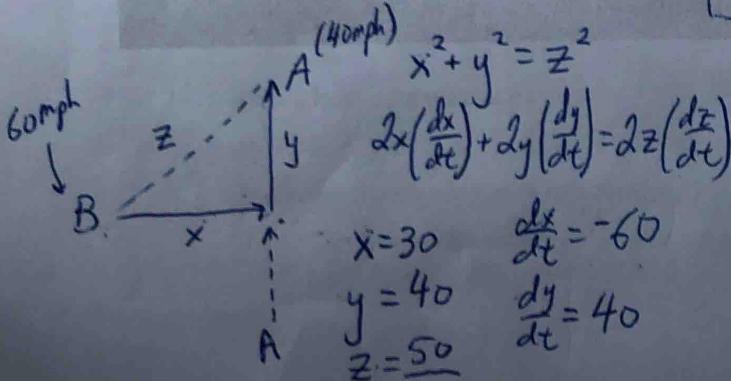 A (40mph)
60mph
z
y
B
x
A
x² + y² = z²
2x(dx/dt) + 2y(dy/dt) = 2z(dz/dt)
x = 30
dx/dt = -60
y = 40
dy/dt = 40
z = 50